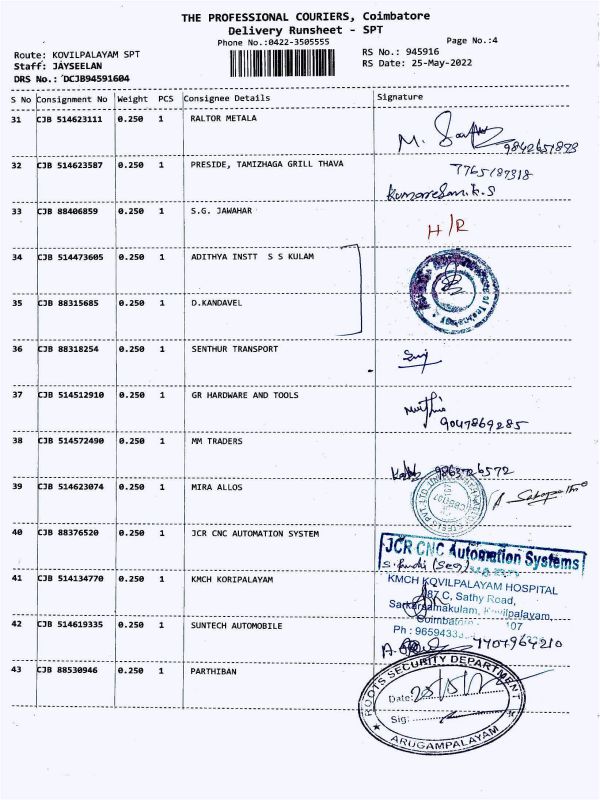 THE PROFESSIONAL COURIERS, Coimbatore
Delivery Runsheet - SPT
Phone No.:0422-3505555
Page No.:4
Route: KOVILPALAYAM SPT
Staff: JAYSEELAN
DRS No.: DCJB94591604
RS No.: 945916
RS Date: 25-May-2022
S No Consignment No Weight PCS Consignee Details Signature
31 CJB 514623111 0.250 1 RALTOR METALA
M.
9842651893
32 CJB 514623587 0.250 1 PRESIDE, TAMIZHAGA GRILL THAVA
7765187318
Kumaresan.K.S
33 CJB 88406859 0.250 1 S.G. JAWAHAR
H/R
34 CJB 514473605 0.250 1 ADITHYA INSTT S S KULAM
of Technology
35 CJB 88315685 0.250 1 D.KANDAVEL
36 CJB 88318254 0.250 1 SENTHUR TRANSPORT
37 CJB 514512910 0.250 1 GR HARDWARE AND TOOLS
9047869285
38 CJB 514572490 0.250 1 MM TRADERS
9863726572
39 CJB 514623074 0.250 1 MIRA ALLOS
A. Sabapathi
40 CJB 88376520 0.250 1 JCR CNC AUTOMATION SYSTEM
JCR CNC Automation Systems
41 CJB 514134770 0.250 1 KMCH KORIPALAYAM
KMCH KOVILPALAYAM HOSPITAL
C, Sathy Road,
Kovilpalayam,
Coimbatore 107
42 CJB 514619335 0.250 1 SUNTECH AUTOMOBILE
Ph :
7707964210
43 CJB 88530946 0.250 1 PARTHIBAN
ROOTS SECURITY DEPARTMENT
Date: 25/5/22
Sig:
ARUGAMPALAYAM